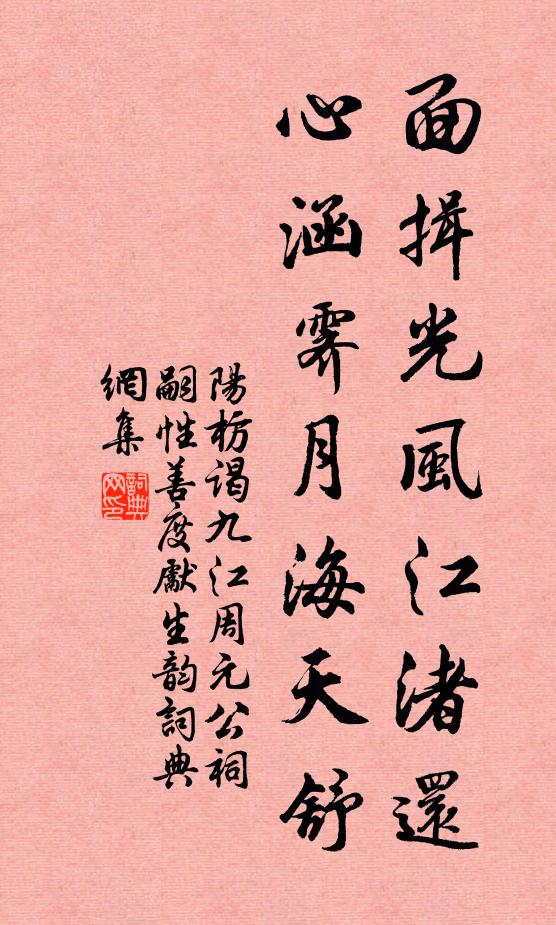 面揖光風江渚還
心涵霽月海天舒
陽枋謁九江周元公祠
嗣性善度獻生韵詞典
網集
詞典
网印